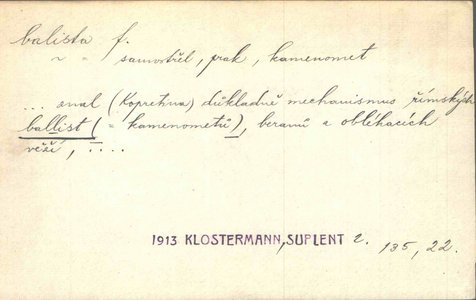 balista f.
" " samostřel, prak, kamenomet
... znal (Kopretina) důkladně mechanismus římských
ballist (= kamenometů), beranů a obléhacích
věží, ....
1913 KLOSTERMANN, SUPLENT 2. 135, 22.